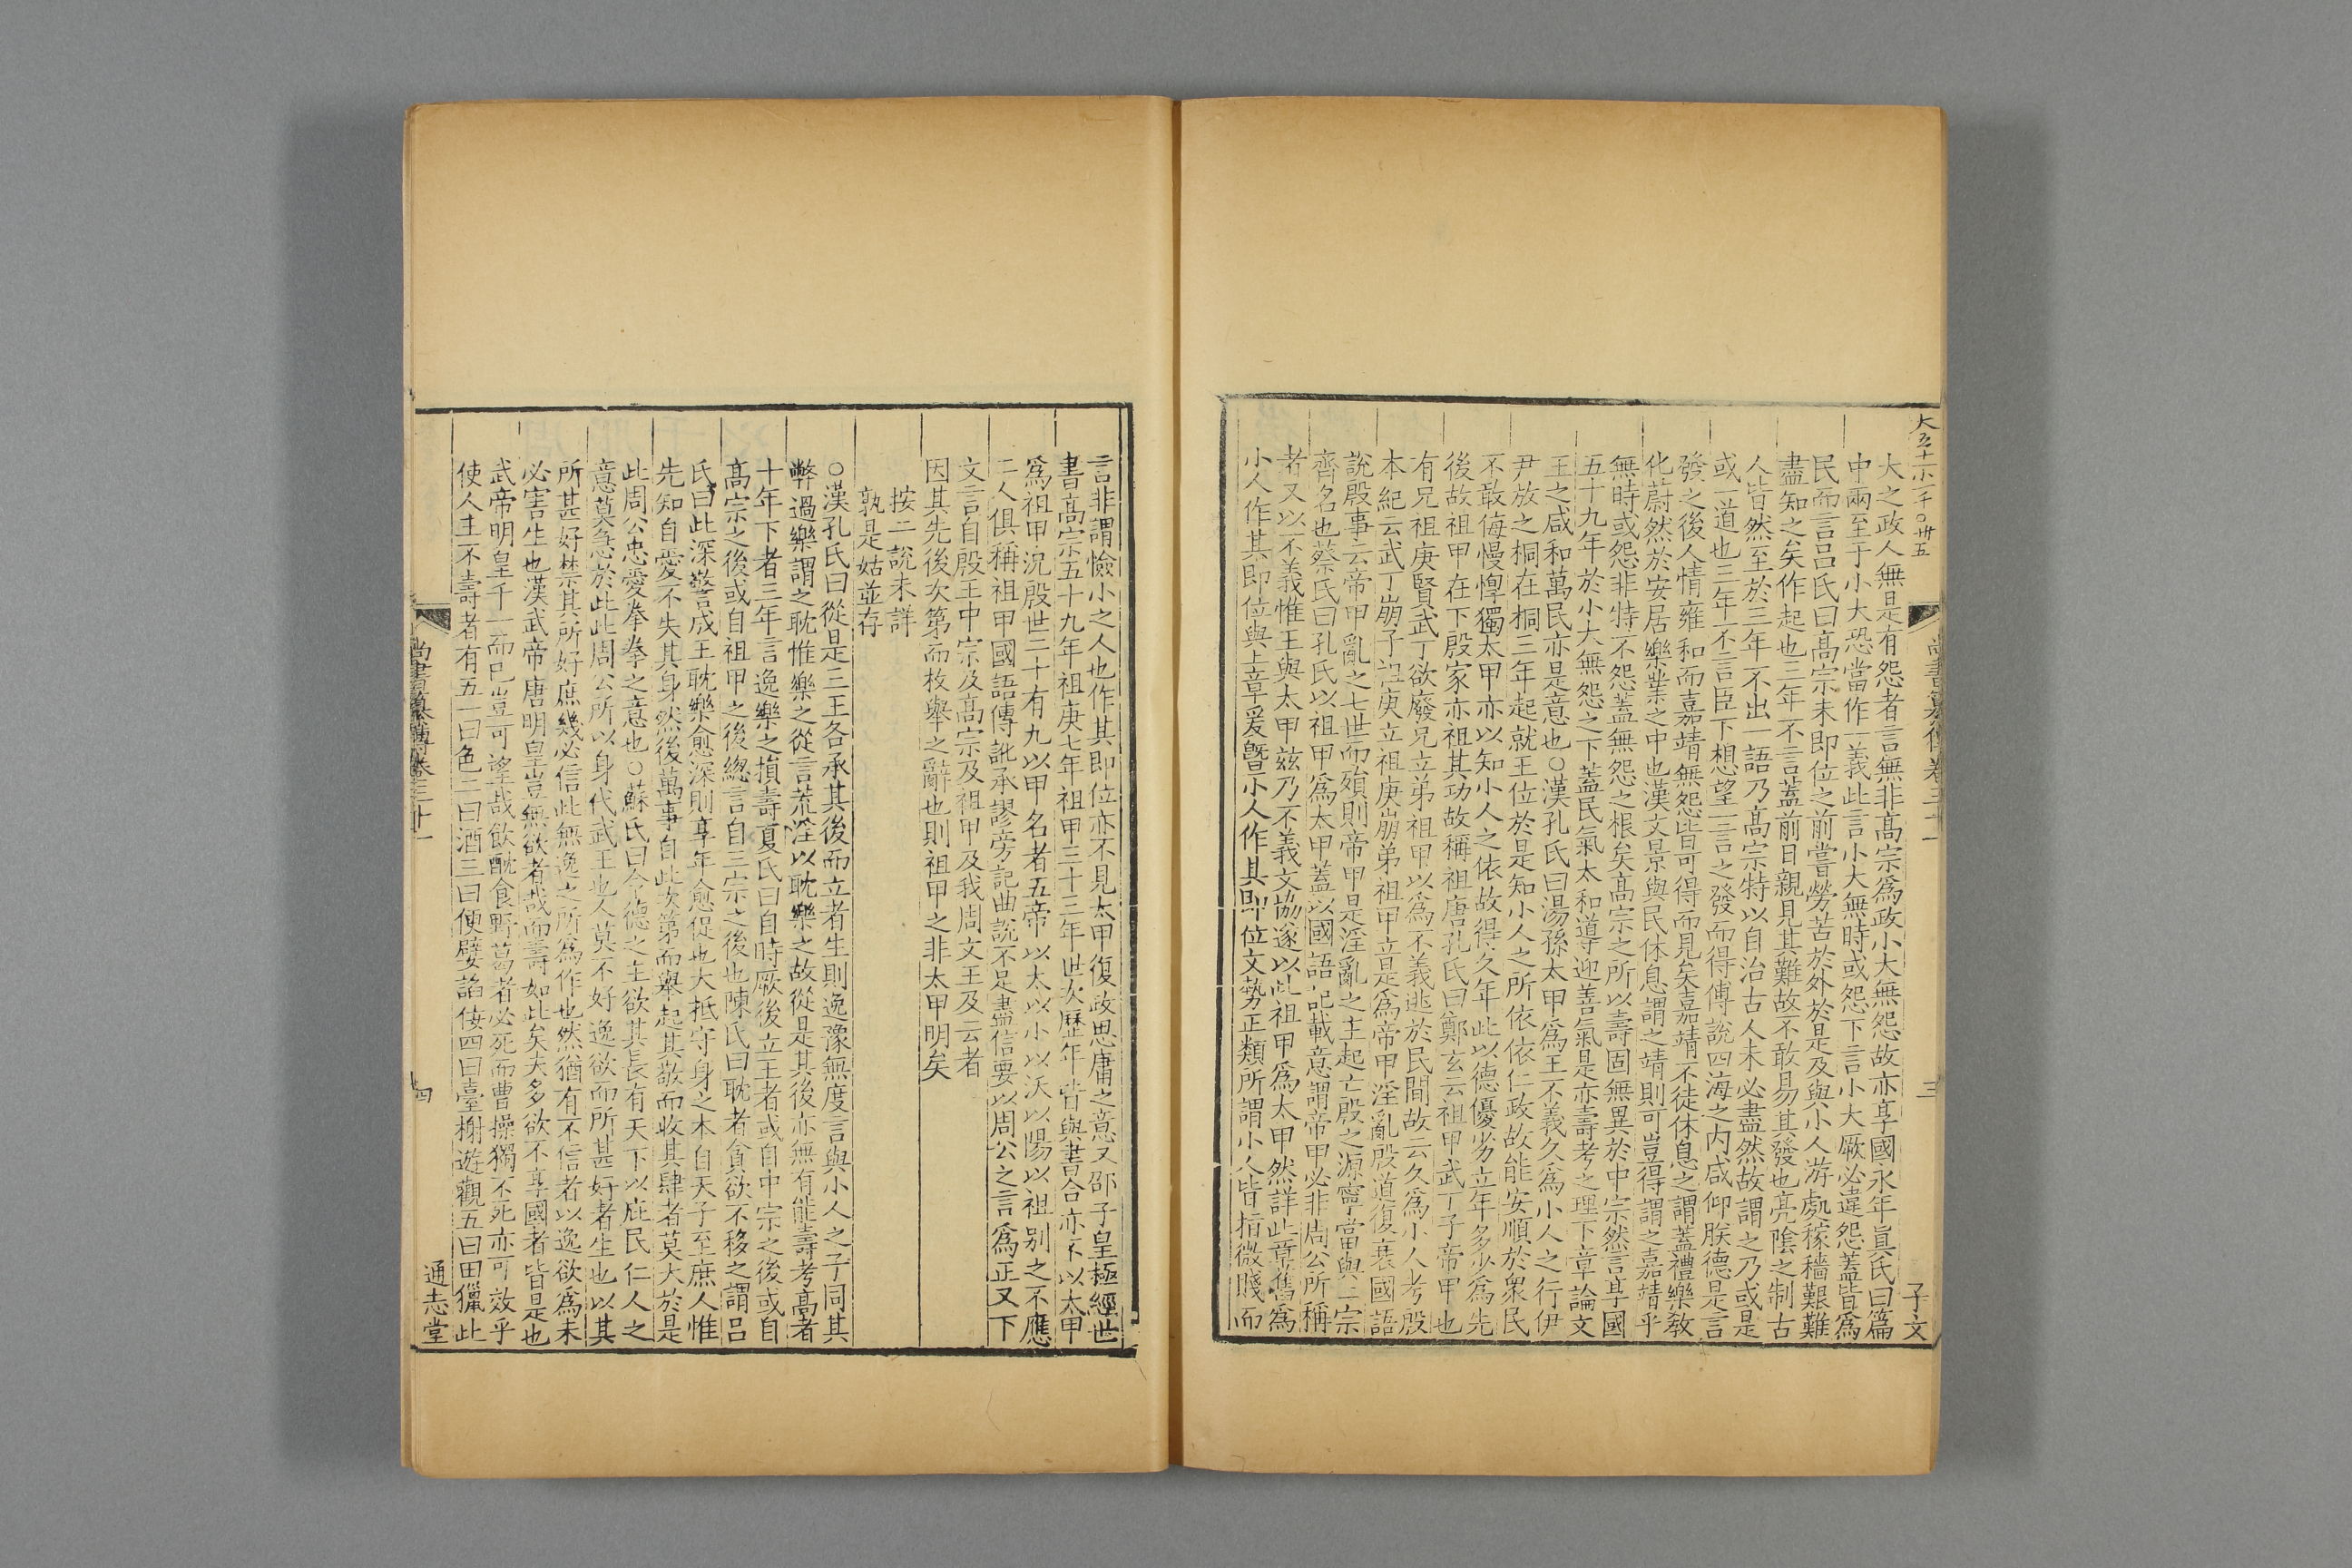 大五十 小一千〇卅五
尚書纂傳卷三十一
三
子文
大之政人無是有怨者言無非高宗為政小大無怨故亦享國永年真氏曰篇
中兩至于小大恐當作一義此言小大無時或怨下言小大厥必違怨蓋皆為
民而言呂氏曰高宗未即位之前嘗勞苦於外於是及與小人游處稼穡艱難
盡知之矣作起也三年不言蓋前日親見其難故不敢易其發也亮陰之制古
人皆然至於三年不出一語乃高宗特以自治古人未必盡然故謂之乃或是
或一道也三年不言臣下想望一言之發而得傅說四海之内咸仰朕德是言
發之後人情雍和而嘉靖無怨皆可得而見矣嘉靖不徒休息之謂蓋禮樂敎
化蔚然於安居樂業之中也漢文景與民休息謂之靖則可豈得謂之嘉靖乎
無時或怨非特不怨蓋無怨之根矣高宗之所以壽固無異於中宗然言享國
五十九年於小大無怨之下蓋民氣太和導迎善氣是亦壽考之理下章論文
王之咸和萬民亦是意也○漢孔氏曰湯孫太甲為王不義久為小人之行伊
尹放之桐在桐三年起就王位於是知小人之所依依仁政故能安順於衆民
不敢侮慢惸獨太甲亦以知小人之依故得久年此以德優劣立年多少為先
後故祖甲在下殷家亦祖其功故稱祖唐孔氏曰鄭玄云祖甲武丁子帝甲也
有兄祖庚賢武丁欲廢兄立弟祖甲以為不義逃於民間故云久為小人考殷
本紀云武丁崩子祖庚立祖庚崩弟祖甲立是為帝甲淫亂殷道復衰國語
說殷事云帝甲亂之七世而殞則帝甲是淫亂之主起亡殷之源寧當與二宗
齊名也蔡氏曰孔氏以祖甲為太甲蓋以國語記載意謂帝甲必非周公所稱
者又以不義惟王與太甲茲乃不義文協遂以此祖甲為太甲然詳此章舊為
小人作其即位與上章爰曁小人作其即位文勢正類所謂小人皆指微賤而
言非謂憸小之人也作其即位亦不見太甲復政思庸之意又邵子皇極經世
書高宗五十九年祖庚七年祖甲三十三年世次歷年皆與書合亦不以太甲
為祖甲況殷世二十有九以甲名者五帝以太以小以沃以陽以祖别之不應
二人俱稱祖甲國語傳訛承謬旁記曲說不足盡信要以周公之言為正又下
文言自殷王中宗及高宗及祖甲及我周文王及云者
因其先後次第而枚舉之辭也則祖甲之非太甲明矣
按二說未詳
孰是姑並存
○漢孔氏曰從是三王各承其後而立者生則逸豫無度言與小人之子同其
弊過樂謂之耽惟樂之從言荒淫以耽樂之故從是其後亦無有能壽考高者
十年下者三年言逸樂之損壽夏氏曰自時厥後立王者或自中宗之後或自
高宗之後或自祖甲之後總言自三宗之後也陳氏曰耽者貪欲不移之謂呂
氏曰此深警言成王耽樂愈深則享年愈促也大抵守身之本自天子至庶人惟
先知自愛不失其身然後萬事自此次第而舉起其敬而收其肆者莫大於是
此周公忠愛拳拳之意也○蘇氏曰令德之主欲其長有天下以庇民仁人之
意莫急於此此周公所以身代武王也人莫不好逸欲而所甚好者生也以其
所甚好禁其所好庶幾必信此無逸之所為作也然猶有不信者以逸欲為未
必害生也漢武帝唐明皇豈無欲者哉而壽如此矣夫多欲不享國者皆是也
武帝明皇千一而已豈可望哉飲酖食野葛者必死而曹操獨不死亦可效乎
使人主不壽者有五一曰色二曰酒三曰便嬖諂佞四曰臺榭遊觀五曰田獵此
尚書纂傳卷三十一
四
通志堂